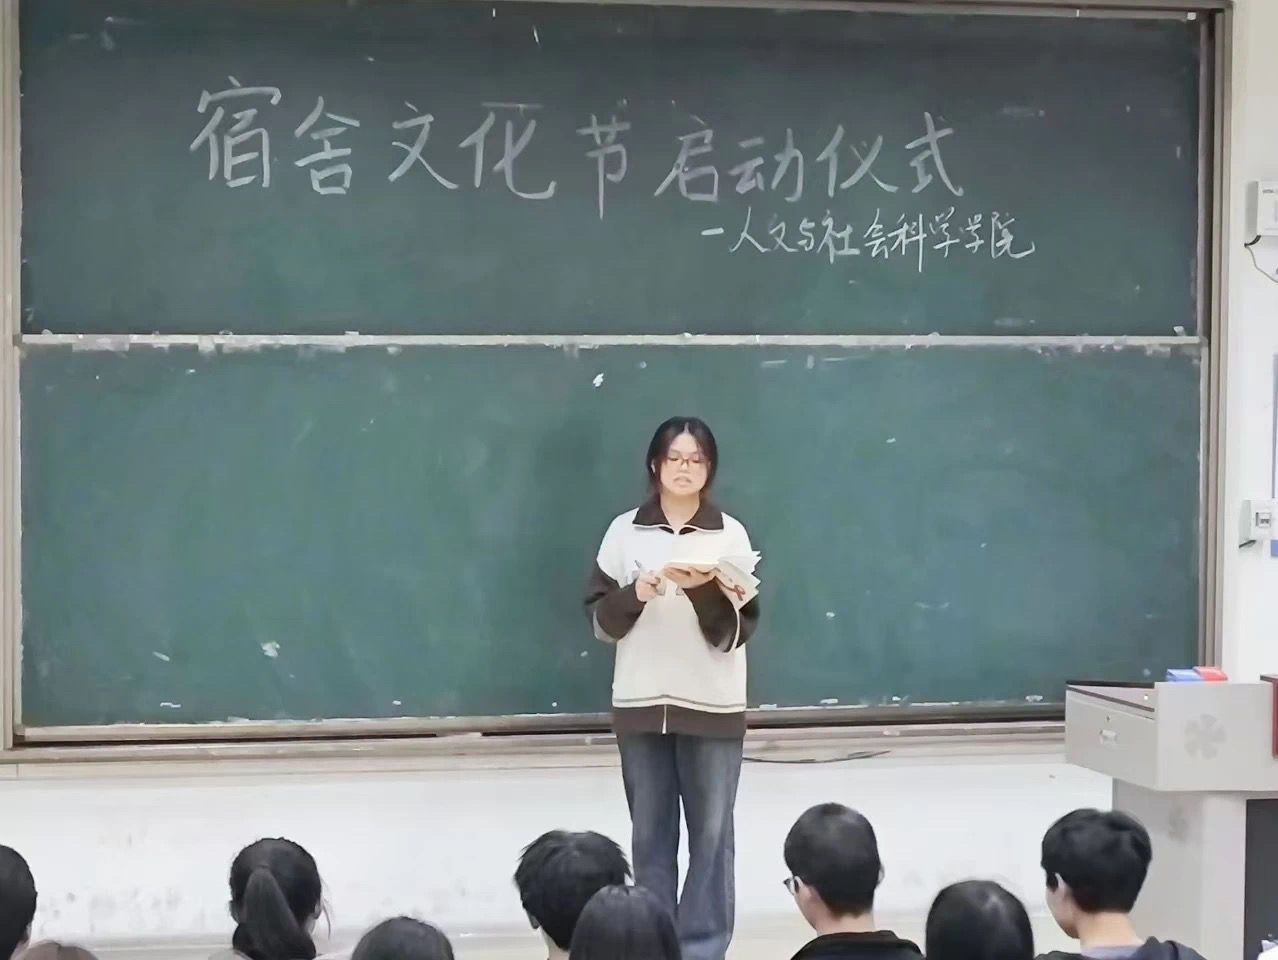 宿舍文化节启动仪式
-人文与社会科学学院